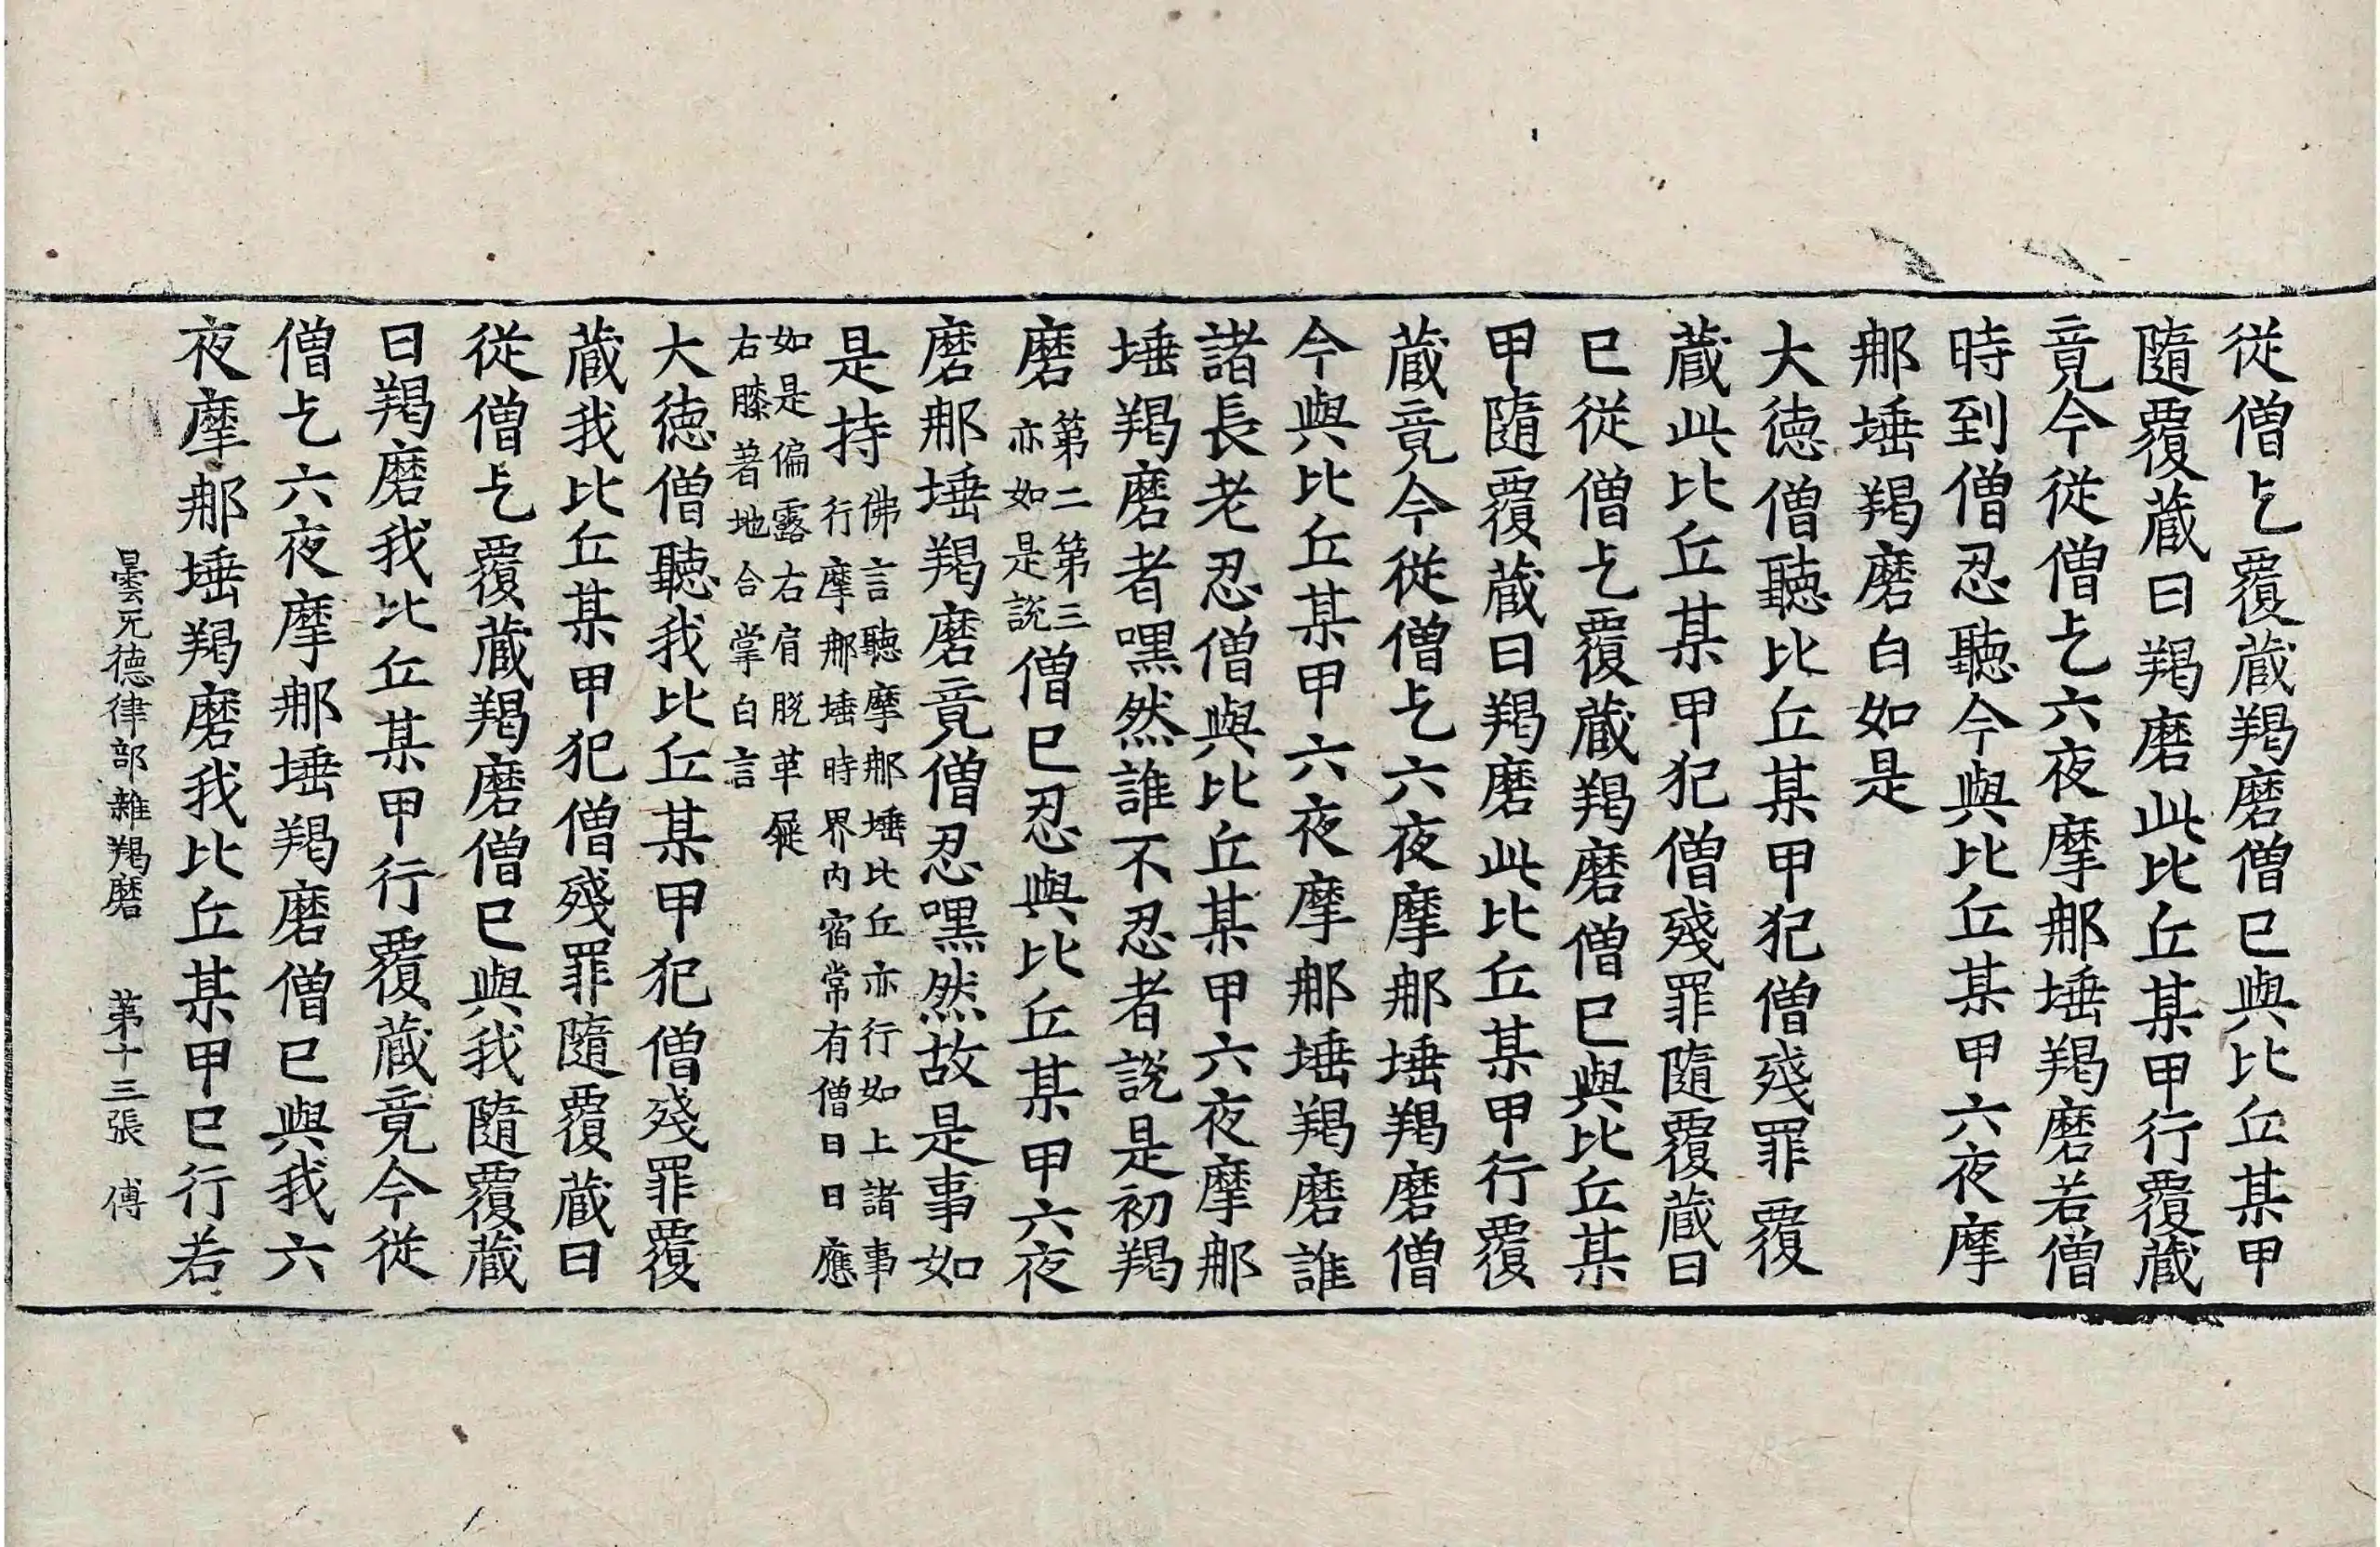 從僧乞覆蔵羯磨僧已與比丘某甲
隨覆蔵日羯磨此比丘某甲行覆蔵
竟今從僧乞六夜摩那埵羯磨若僧
時到僧忍聽今與比丘某甲六夜摩
那埵羯磨白如是
大徳僧聽比丘某甲犯僧殘罪覆
蔵此比丘某甲犯僧殘罪隨覆蔵日
已從僧乞覆蔵羯磨僧已與比丘某
甲隨覆蔵日羯磨此比丘某甲行覆
蔵竟今從僧乞六夜摩那埵羯磨僧
今與比丘某甲六夜摩那埵羯磨誰
諸長老忍僧與比丘某甲六夜摩那
埵羯磨者嘿然誰不忍者說是初羯
磨第二第三亦如是說僧已忍與比丘某甲六夜
磨那埵羯磨竟僧忍嘿然故是事如
是持佛言聽摩那埵比丘亦行如上諸事行摩那埵時界內宿常有僧日日應
如是偏露右肩脫革屣右膝著地合掌白言
大徳僧聽我比丘某甲犯僧殘罪覆
蔵我比丘某甲犯僧殘罪隨覆蔵日
從僧乞覆蔵羯磨僧已與我隨覆蔵
日羯磨我比丘某甲行覆蔵竟今從
僧乞六夜摩那埵羯磨僧已與我六
夜摩那埵羯磨我比丘某甲已行若
曇无德律部雜羯磨 第十三張 傅